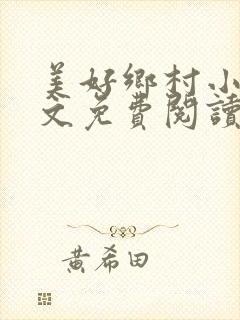 美好鄉村小
文免費閱讀
黃希田